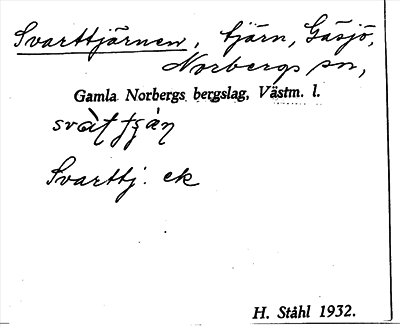 Svarttjärnen, tjärn, Gäsjö,
Norbergs sn,
Gamla Norbergs bergslag, Västm. l.
Svarttj. ek
H. Ståhl 1932.